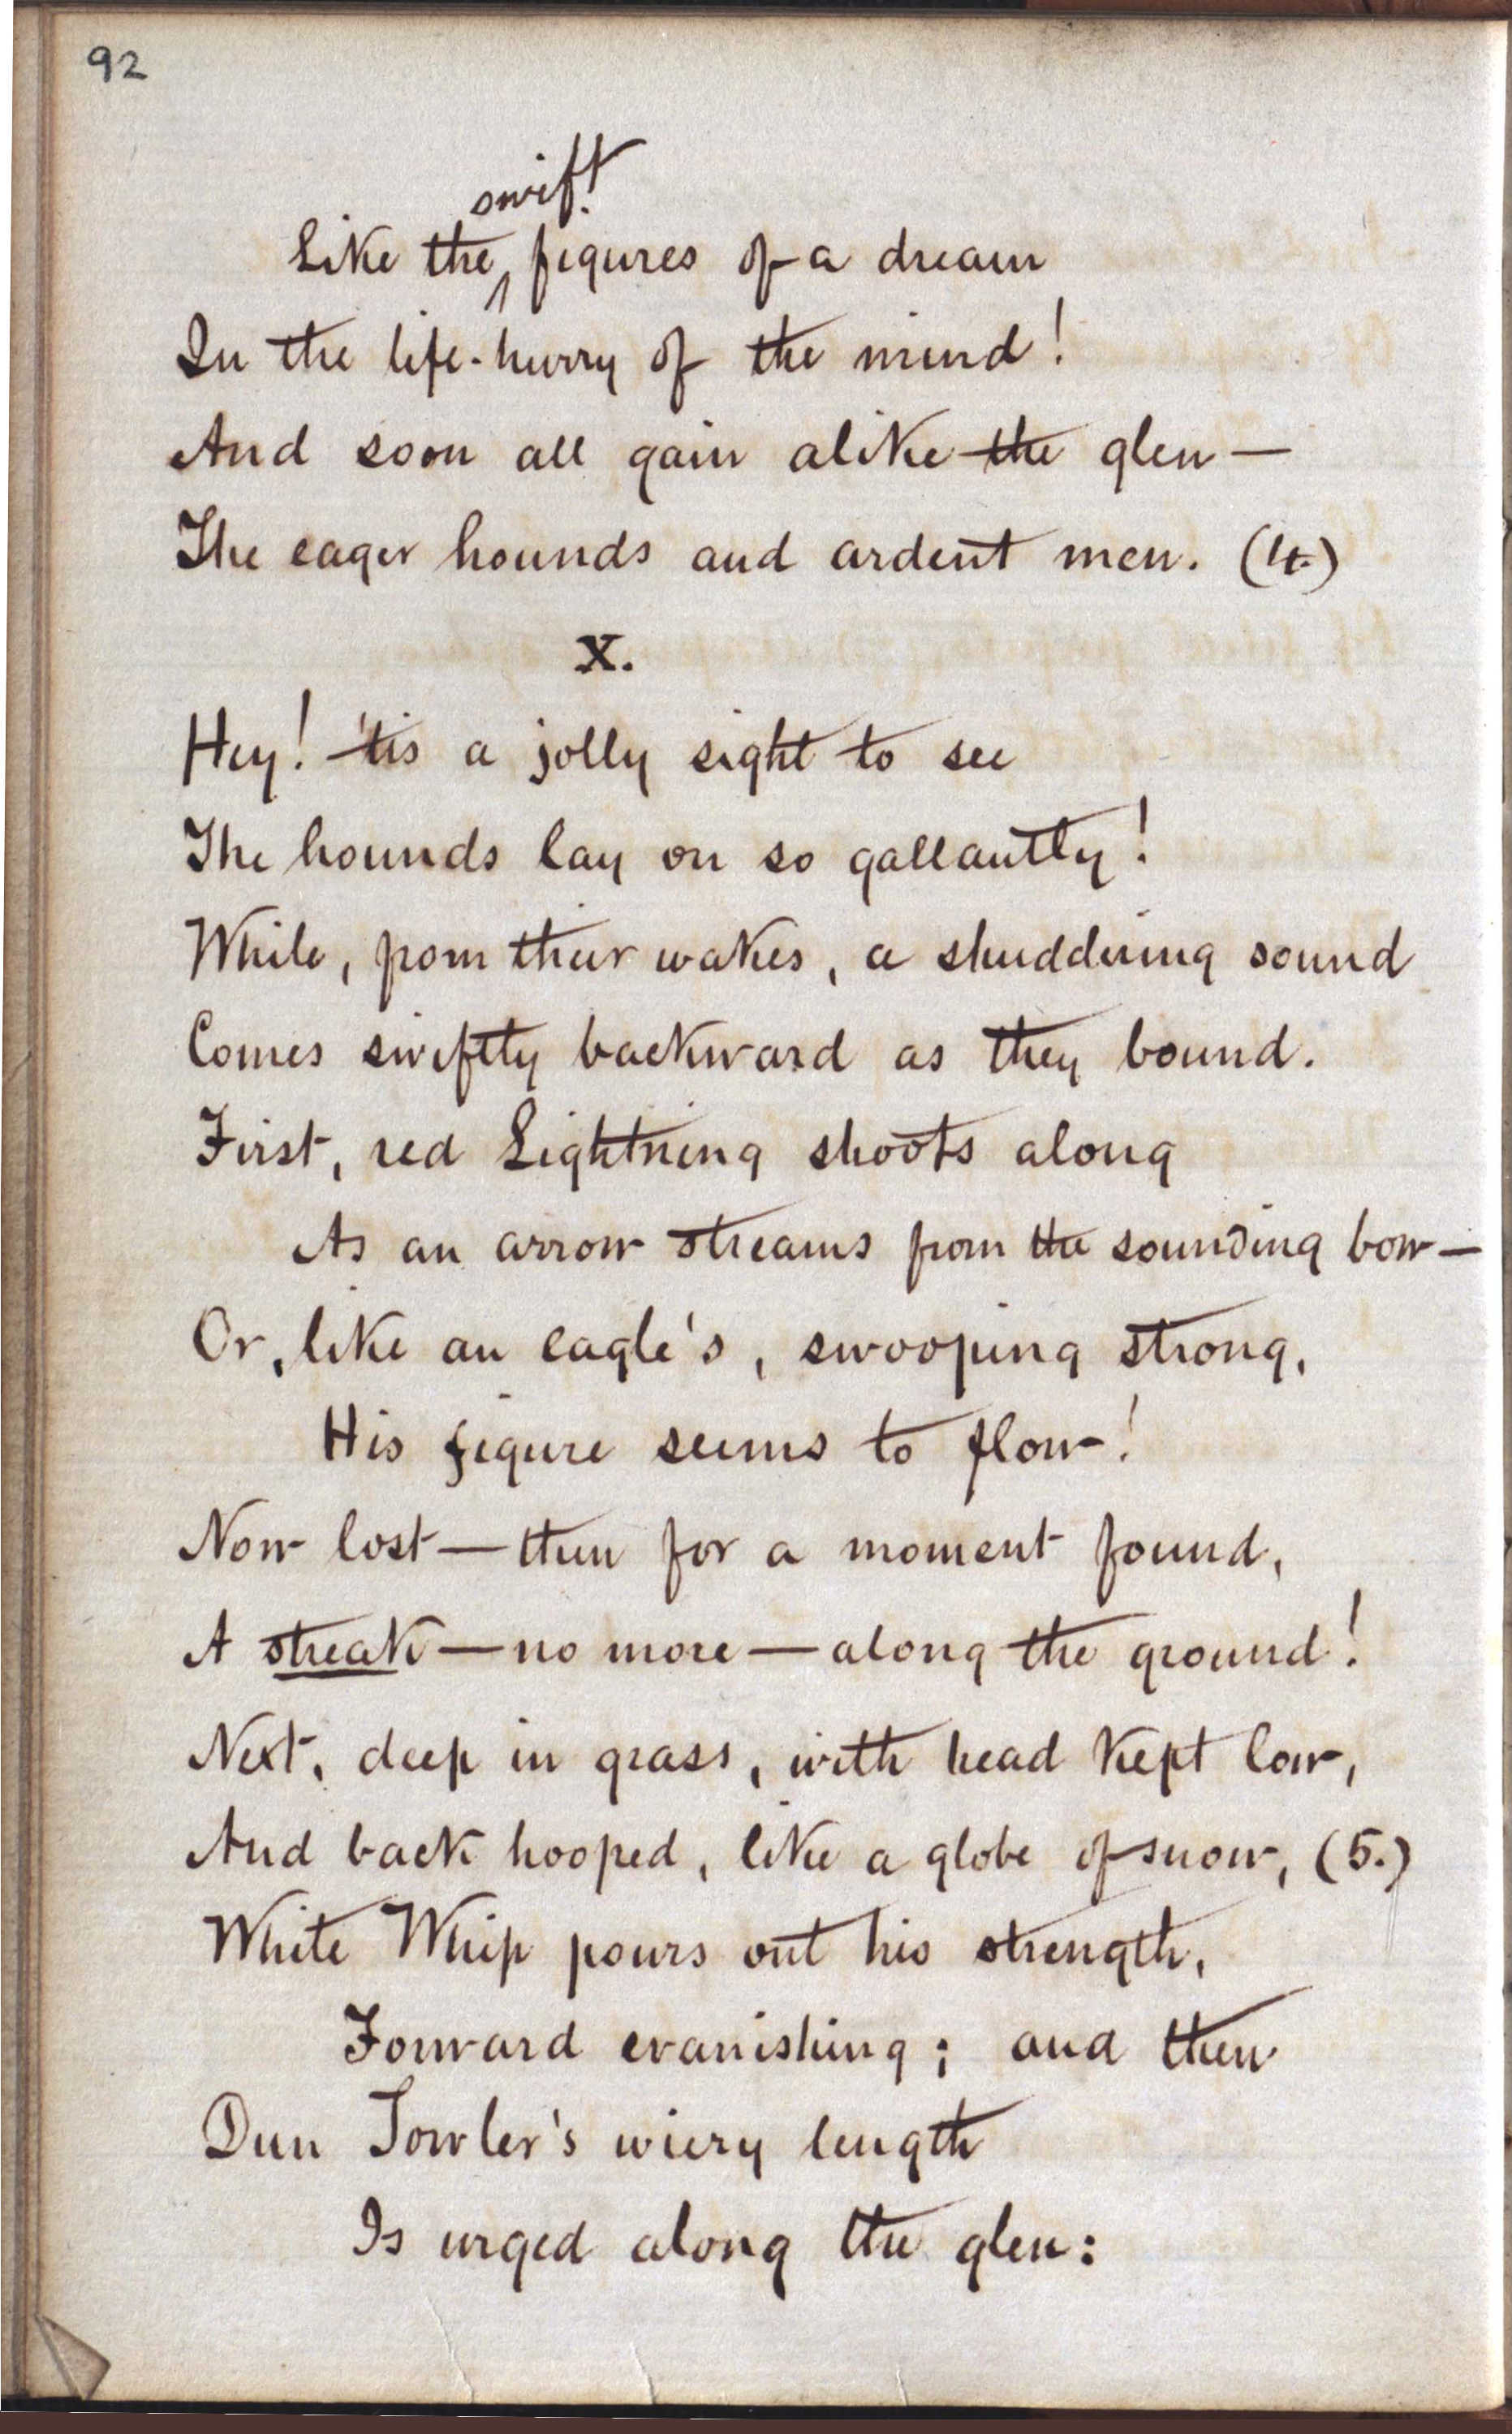 92
swift
Like the ‸ figures of a dream
In the life-hurry of the mind!
And soon all gain alike the glen —
The eager hounds and ardent men. (4.)
X.
Hey! 'tis a jolly sight to see
The hounds lay on so gallantly!
While, from their wakes, a shuddering sound
Comes swiftly backward as they bound.
First, red Lightning shoots along
As an arrow streams from the sounding bow —
Or, like an eagle's, swooping strong,
His figure seems to flow!
Now lost — then for a moment found,
A streak — no more — along the ground!
Next, deep in grass, with head kept low,
And back hooped, like a globe of snow, (5.)
White Whip pours out his strength,
Forward evanishing; and then
Dun Towler's wiery length
Is urged along the glen: